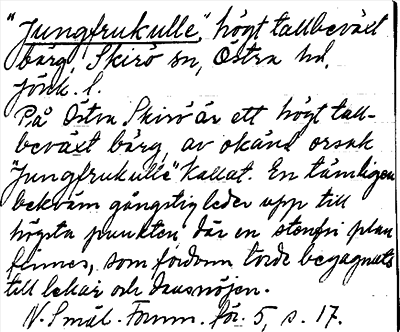 "Jungfrukulle", högt tallbeväxt
bärg, Skirö sn, Östra hd,
Jönk. l.
På Östra Skirö är ett högt tall-
beväxt bärg, av okänd orsak
"Jungfrukulle" kallat. En tämligen
bekväm gångstig leder upp till
högsta punkten, där en stenfri plan
finnes, som fordom torde begagnats
till lekar och dansnöjen.
N. Smål. Fornm. för. 5, s. 17.